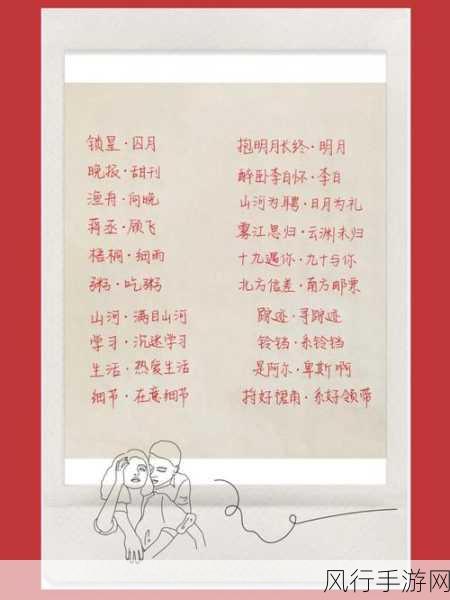 锁星·囚月
晚报·甜刊
渔舟·向晚
蒋丞·顾飞
梧桐·细雨
粥·吃粥
山河·满目山河
学习·沉迷学习
生活·热爱生活
细节·在意细节
抱明月长终·明月
醉卧李白怀·李白
山河为聘·日月为礼
雾江思归·云洲未归
十九遇你·九十与你
北方信差·南方邮票
蹭迹·寻蹭迹
铃铛·系铃铛
是阿尔·卑斯啊
捋好裙角·系好领带
风行手游网